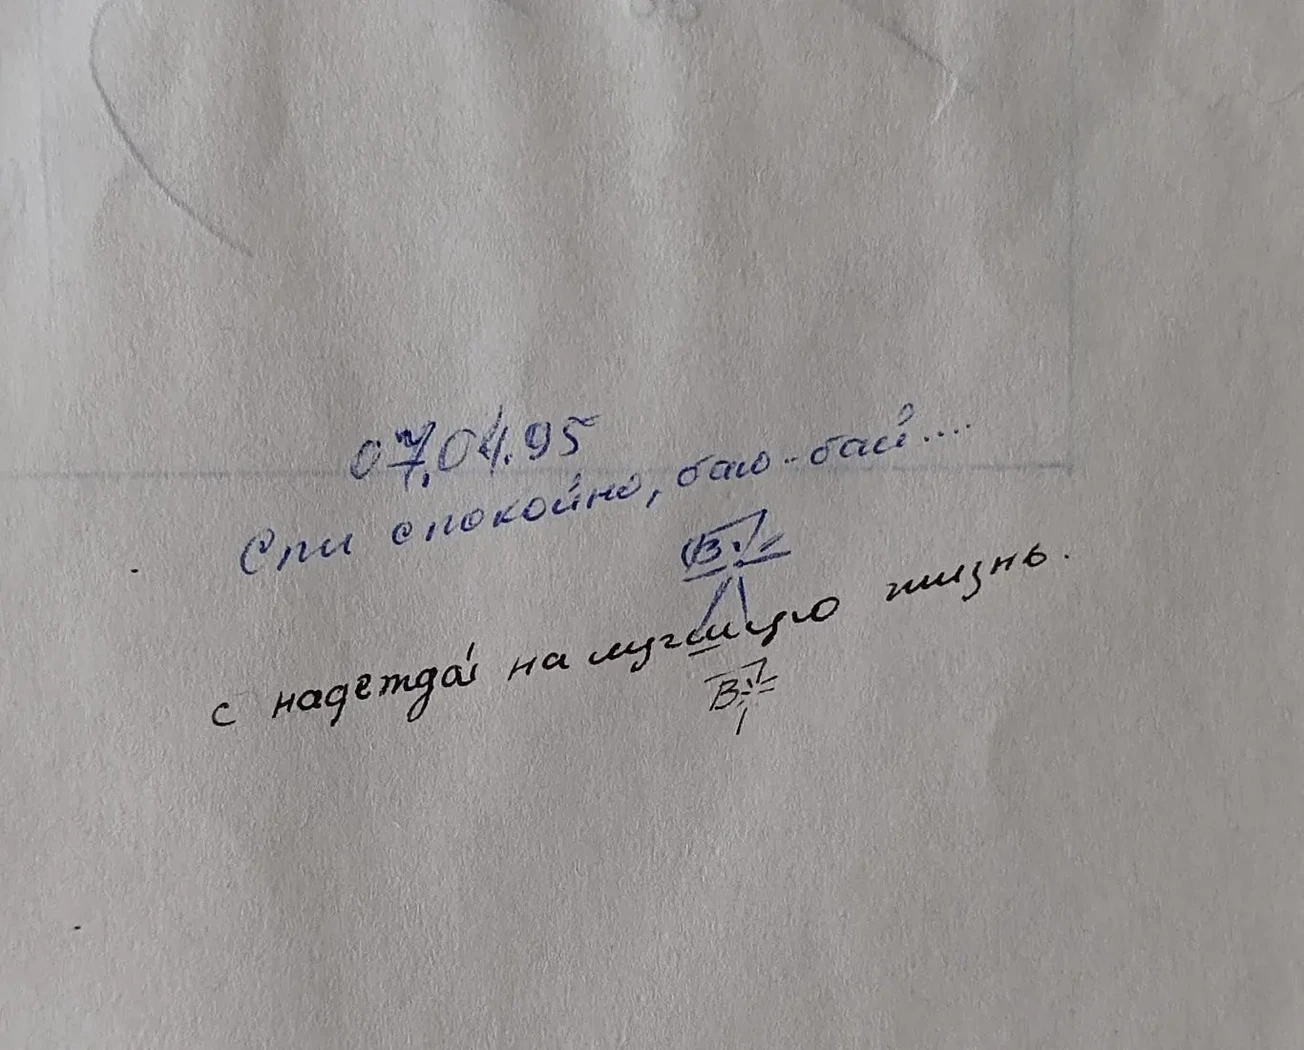 07.04.95
Спи спокойно, баю-бай....
с надежда́ на лучшую жизнь.